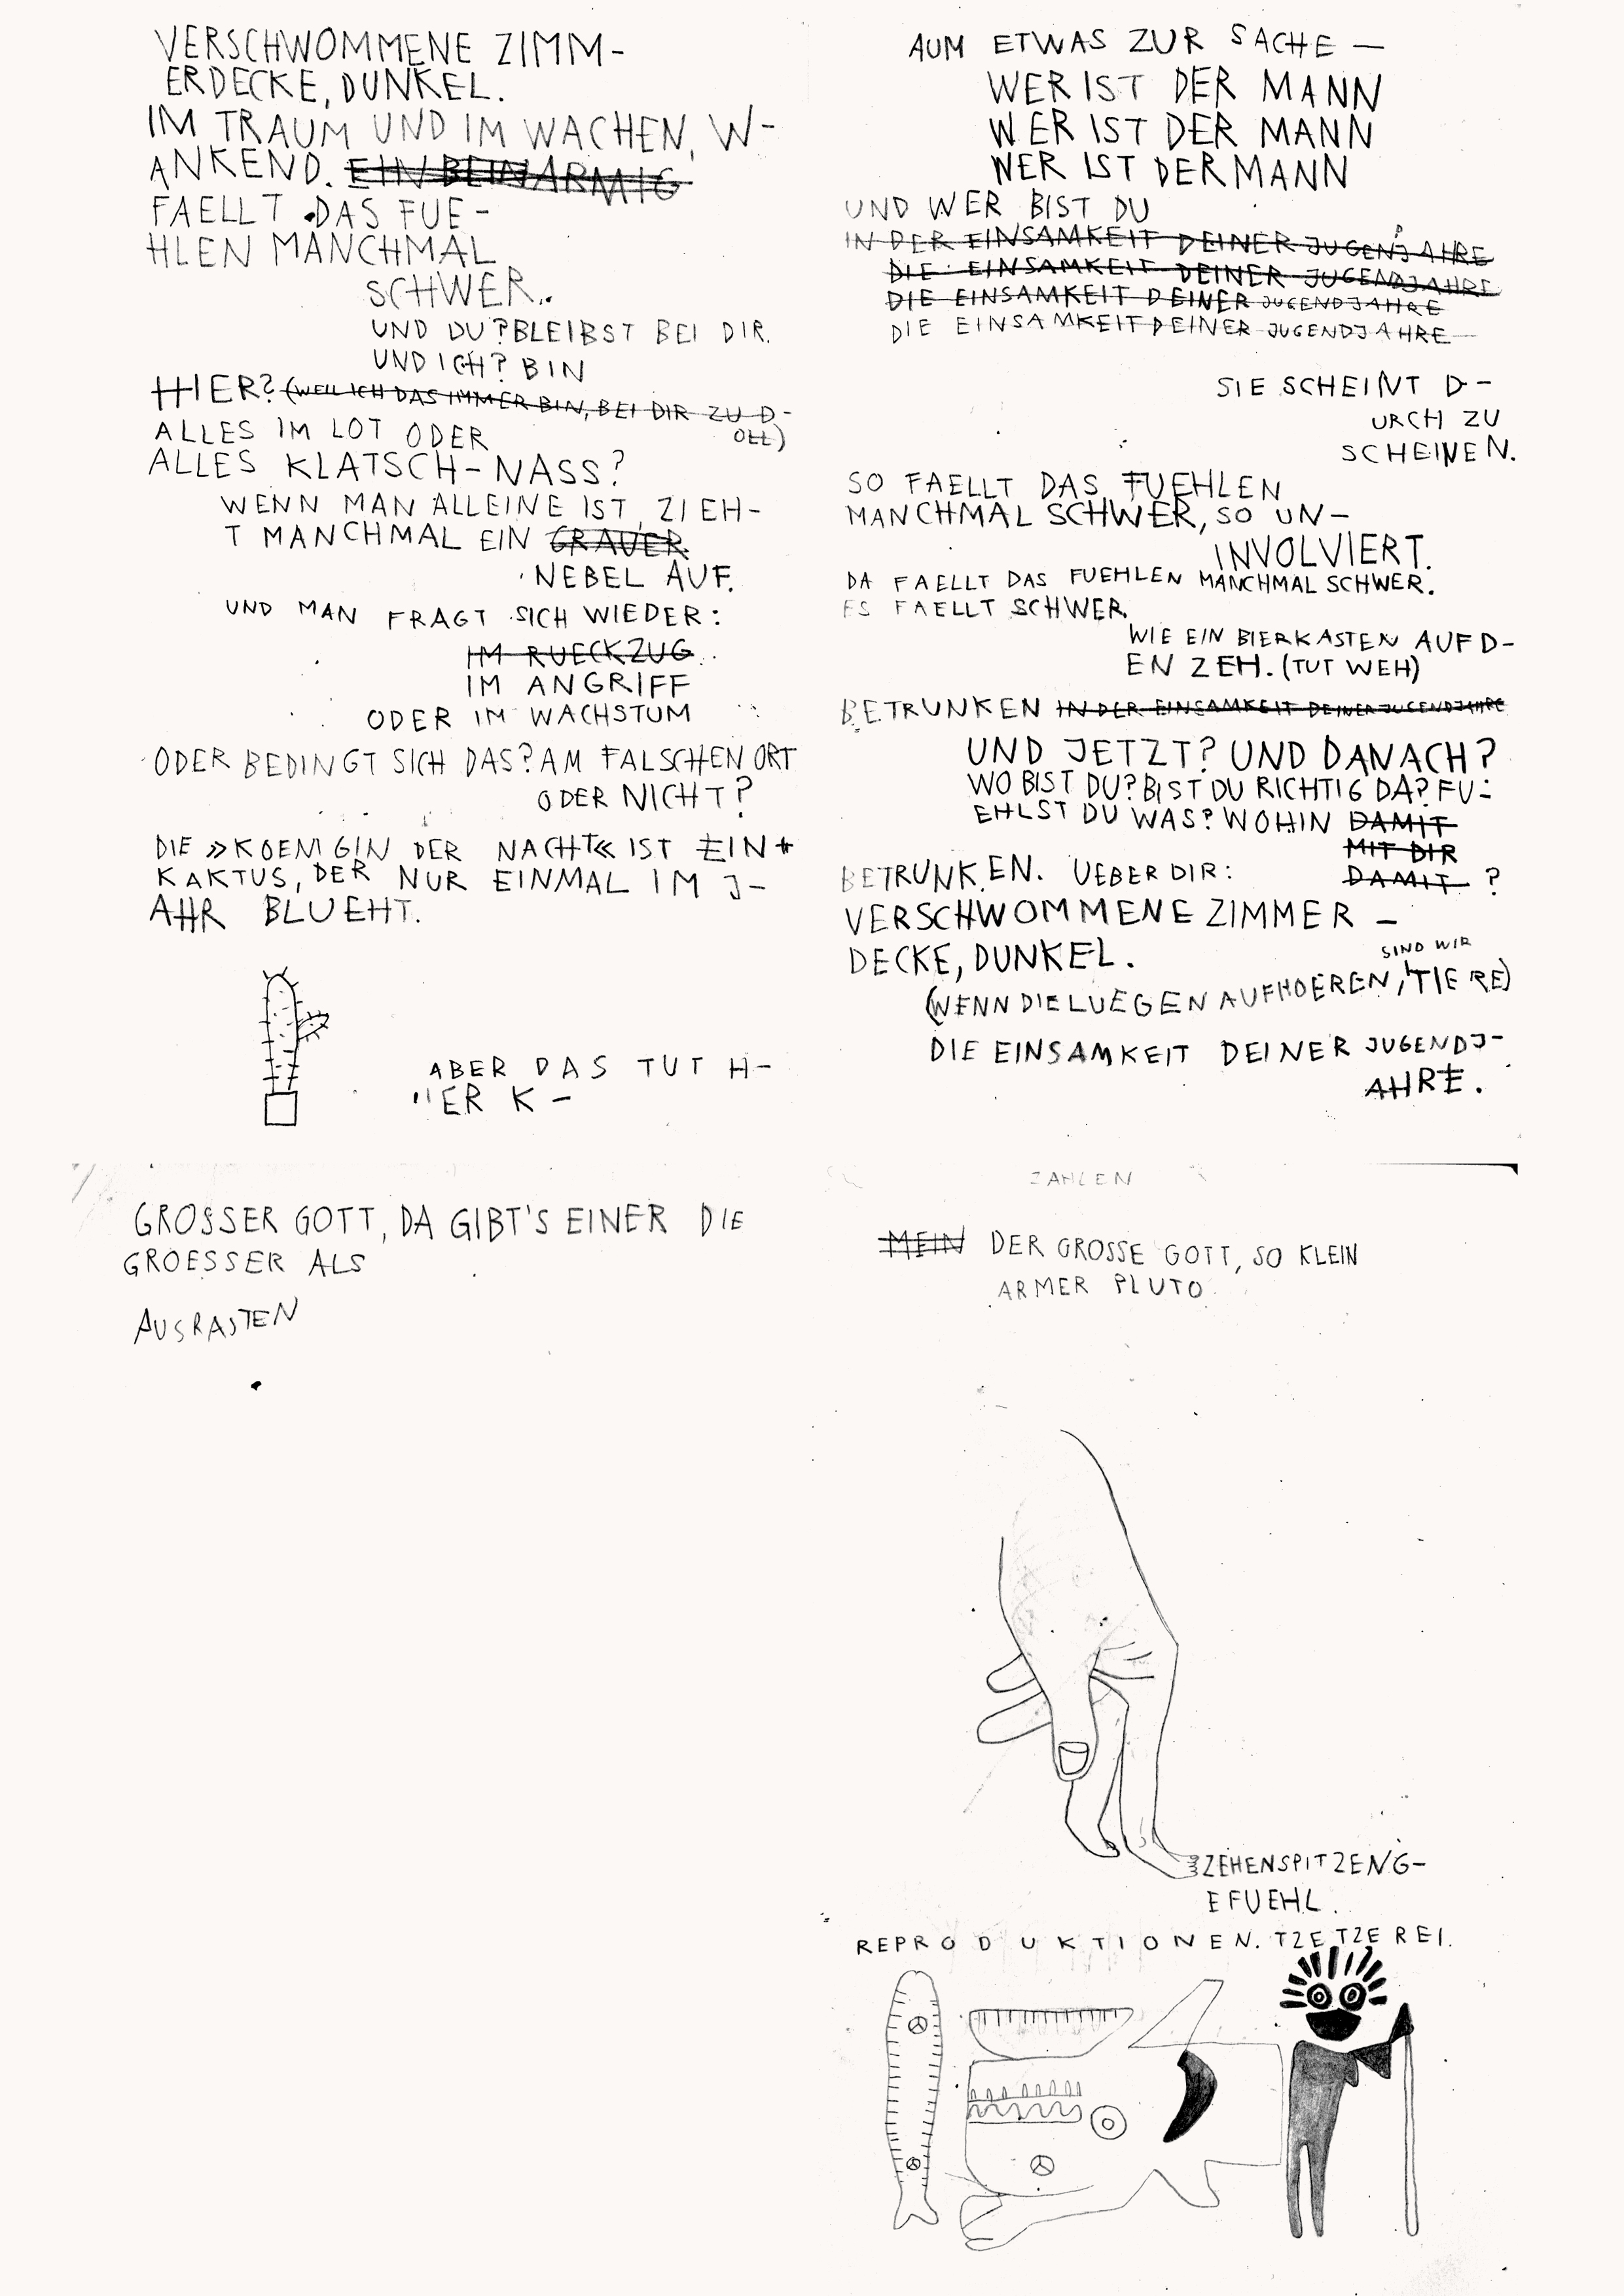 VERSCHWOMMENE ZIMM-
ERDECKE, DUNKEL.
IM TRAUM UND IM WACHEN, W-
ANKEND. EIN BEINARMIG
FAELLT DAS FUE-
HLEN MANCHMAL
SCHWER..
UND DU? BLEIBST BEI DIR.
UND ICH? BIN
HIER? (WEIL ICH DAS IMMER BIN, BEI DIR ZU D-
OLL)
ALLES IM LOT ODER
ALLES KLATSCH-NASS?
WENN MAN ALLEINE IST, ZIEH-
T MANCHMAL EIN GRAUER
NEBEL AUF.
UND MAN FRAGT SICH WIEDER:
IM RUECKZUG
IM ANGRIFF
ODER IM WACHSTUM
ODER BEDINGT SICH DAS? AM FALSCHEN ORT
ODER NICHT?
DIE »KOENIGIN DER NACHT« IST EIN
KAKTUS, DER NUR EINMAL IM J-
AHR BLUEHT.
ABER DAS TUT H-
IER K-
AUM ETWAS ZUR SACHE —
WER IST DER MANN
WER IST DER MANN
WER IST DER MANN
UND WER BIST DU
IN DER EINSAMKEIT DEINER JUGENDJAHRE
DIE EINSAMKEIT DEINER JUGENDJAHRE
DIE EINSAMKEIT DEINER JUGENDJAHRE
DIE EINSAMKEIT DEINER JUGENDJAHRE
SIE SCHEINT D-
URCH ZU
SCHEINEN.
SO FAELLT DAS FUEHLEN
MANCHMAL SCHWER, SO UN-
INVOLVIERT.
DA FAELLT DAS FUEHLEN MANCHMAL SCHWER.
ES FAELLT SCHWER
WIE EIN BIERKASTEN AUF D-
EN ZEH. (TUT WEH)
BETRUNKEN IN DER EINSAMKEIT DEINER JUGENDJAHRE
UND JETZT? UND DANACH?
WO BIST DU? BIST DU RICHTIG DA? FU-
EHLST DU WAS? WOHIN DAMIT
MIT DIR
DAMIT ?
BETRUNKEN. UEBER DIR:
VERSCHWOMMENE ZIMMER-
DECKE, DUNKEL.
(WENN DIE LUEGEN AUFHOEREN, SIND WIR TIERE)
DIE EINSAMKEIT DEINER JUGENDJ-
AHRE.
GROSSER GOTT, DA GIBT'S EINER DIE
GROESSER ALS
AUSRASTEN
ZAHLEN
MEIN DER GROSSE GOTT, SO KLEIN
ARMER PLUTO
ZEHENSPITZENG-
EFUEHL.
REPRODUKTIONEN. TZETZEREI.